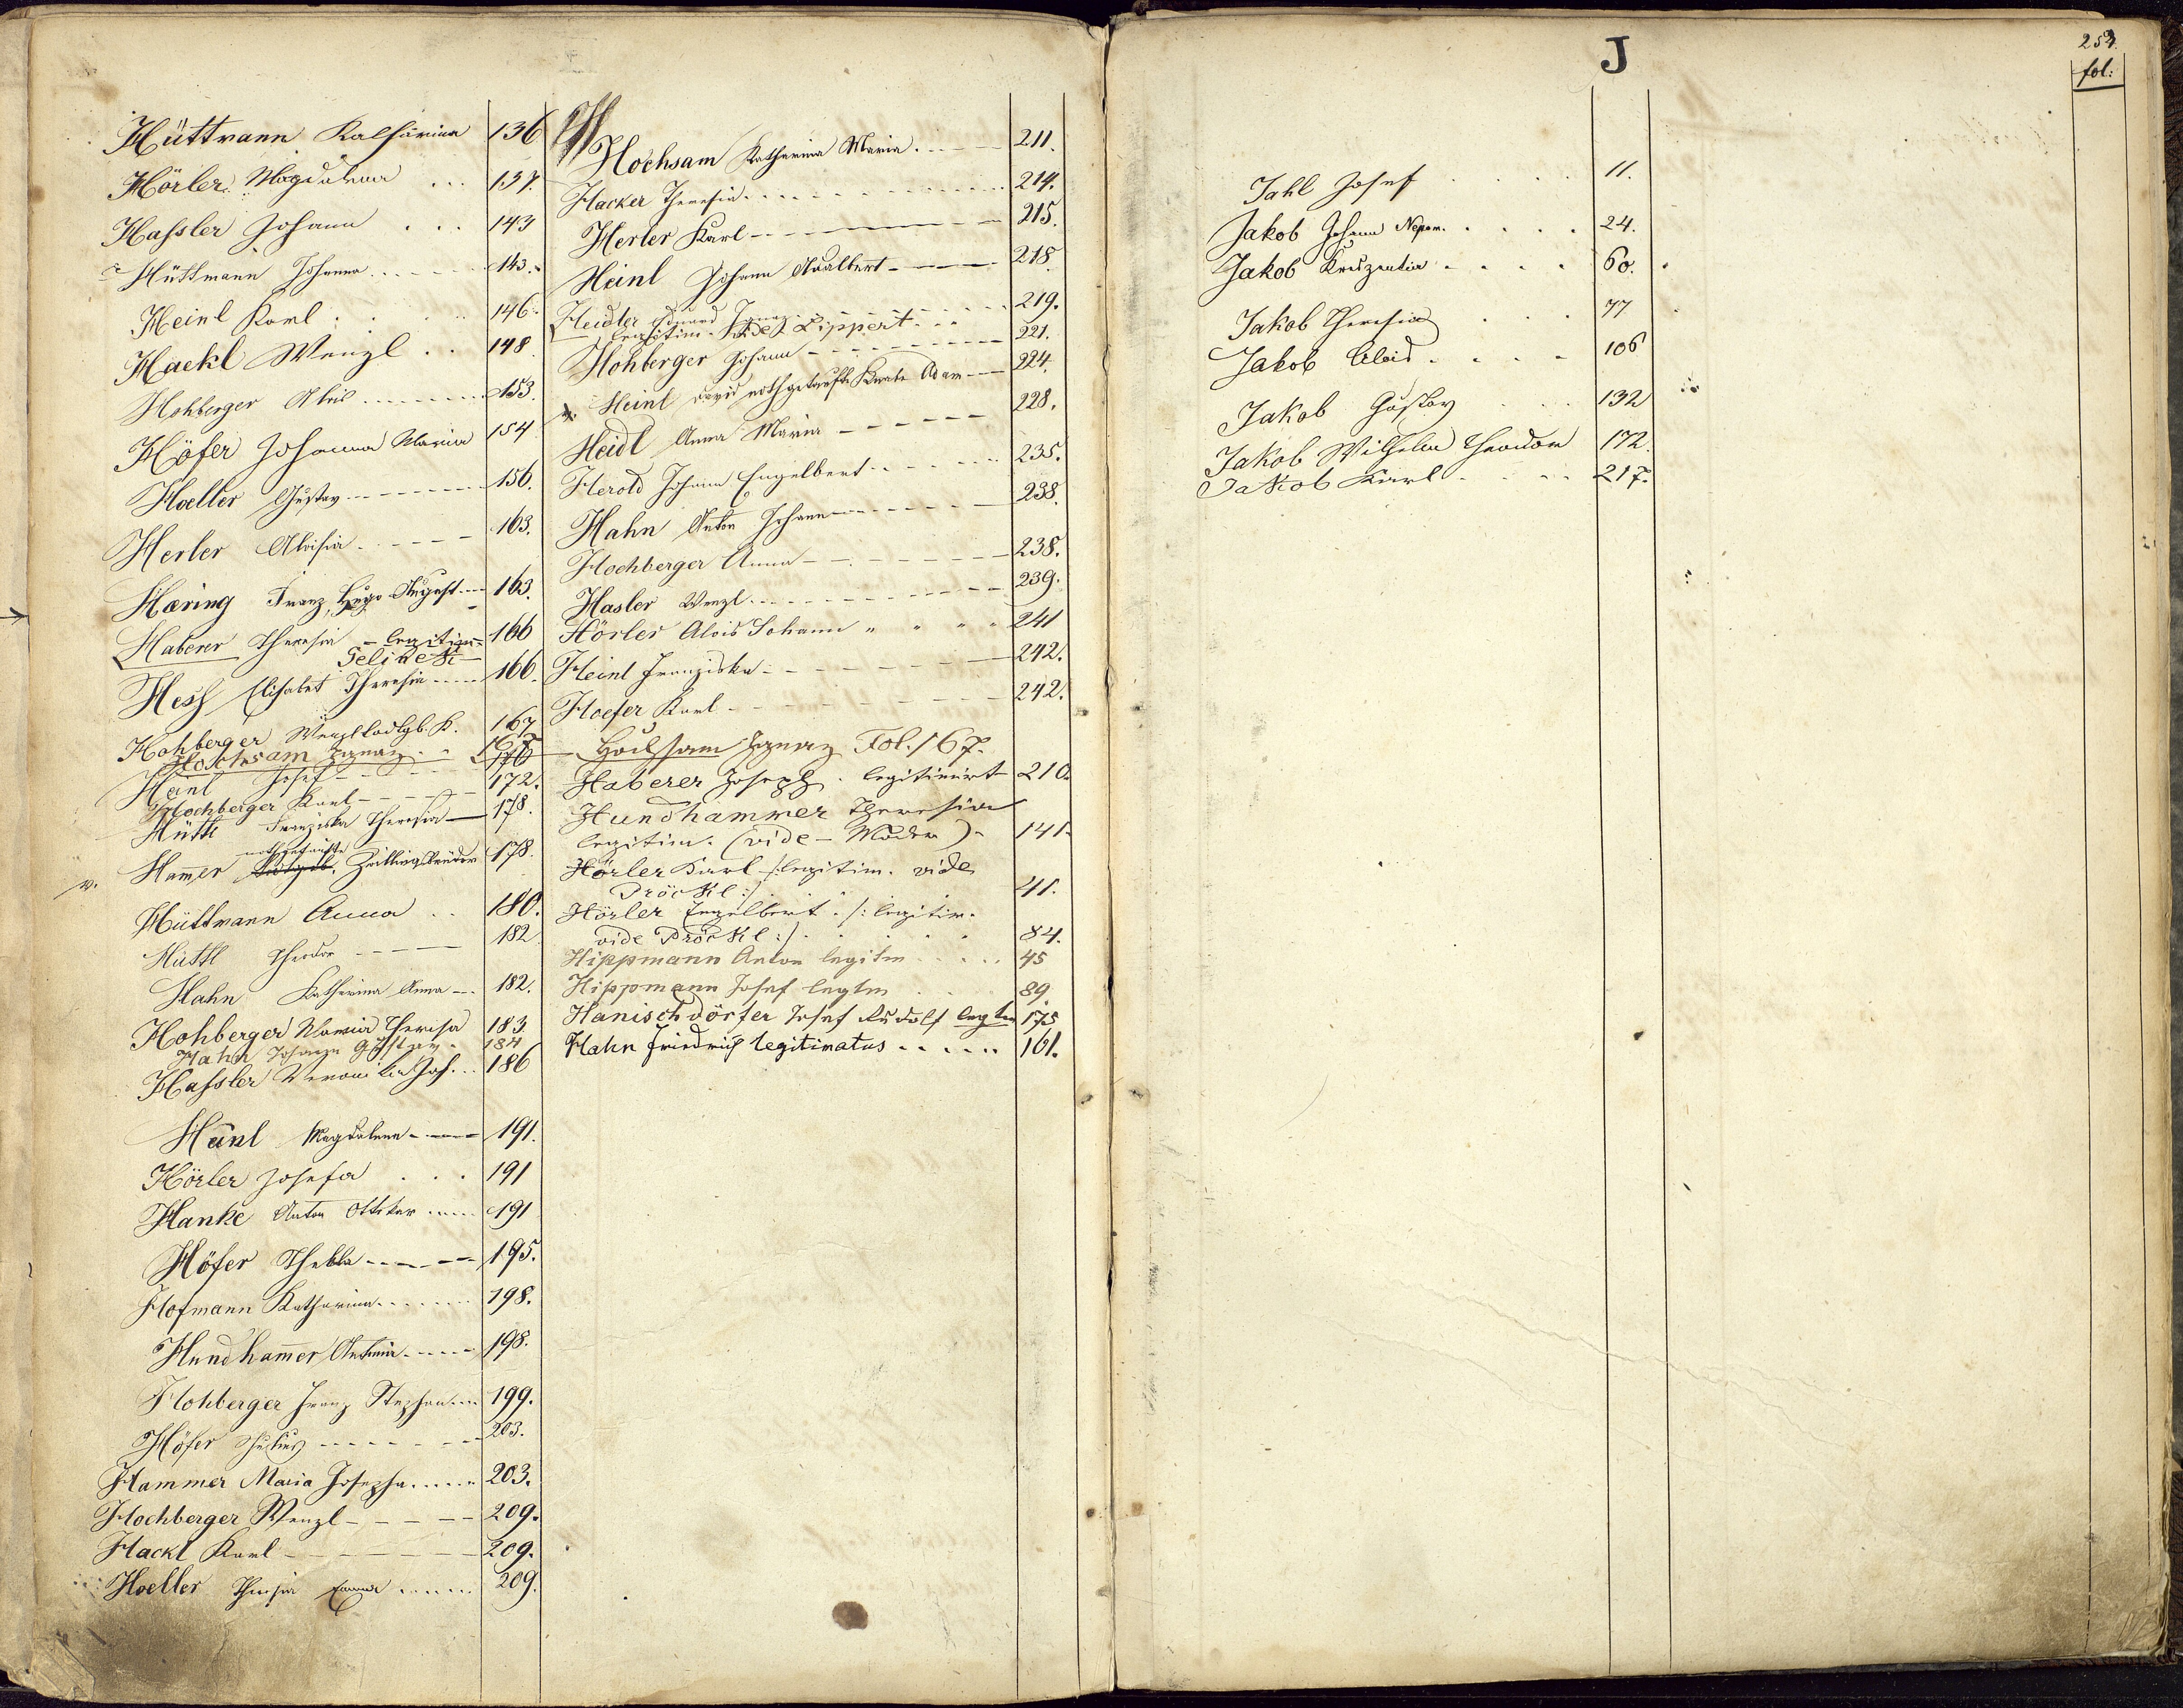 Hüttmann Katharina 136
Hörler Magdalena ... 137.
Haſsler Johann ... 143
Hüttmann Johanna ..... 143.
Heinl Karl . . . 146.
Hackl Wenzl . . 148
Hohberger Alois ........ 153.
Höfer Johanna Maria 154
Hoeller Gustav -------- 156.
Herler Aloisia ----- 163.
Hæring Franz Hugo August --- 163.
Haberer Theresia - legitim= 166
Selinek
Heſs Elisabet Theresia ---- 166.
Hohberger Wenzl K. 167
Hochsam Ignaz . . 167
Heinl Josef ---- 170
Hochberger Karl ----- 172.
Hüttl Franziska Theresia — 178.
nothgetaufte
v. Ham̄er Zwillingsbrüder 178.
Hüttmann Anna . . 180.
Hüttl Theodor ---- 182
Hahn Katharina Anna --- 182.
Hohberger Maria Theresa 183.
Hahn Johann Gustav . 184
Haſsler Veronika Jos. . . 186
Hänl Magdalena ----- 191.
Hörler Josefa . . . 191
Hanke Anton Ottokar ..... 191
Höfer Thekla ------ 195.
Hofmann Katharina ....... 198.
Hundham̄er Antonia ----- 198.
Hohberger Franz Stephan .... 199.
Höfer Julius ------- 203.
Hammer Maria Josepha ..... 203.
Hochberger Wenzl ----- 209.
Hackl Karl ------ 209.
Hoeller Theresia Emma ...... 209.
H
Hochsam Katharina Maria . ---- 211.
Hacker Theresia ........ 214.
Herler Karl -------- 215.
Heinl Johann Adalbert ----- 218.
Heidler Eduard Ignaz ...... 219.
legitim. vide Lippert . . .
Hohberger Johann -------- 221.
v. Heinl David nothgetaufte Knabe Adam --- 224.
Heidl Anna Maria ----- 228.
Herold Johann Engelbert ....... 235.
Hahn Anton Johann ------- 238.
Hochberger Anna ------- 238.
Hasler Wenzl .......... 239.
Hörler Alois Johann „ „ „ „ 241
Heinl Franziska ------- 242.
Hoefer Karl -------- 242.
Hochsam Ignaz Fol. 167.
Haberer Joseph . legitimirt 210.
Hundhammer Theresia
legitim. (vide - Mader) - 141.
Hörler Karl /: legitim. vide
Pröckl :/ 41.
Hörler Engelbert . /: legitim.
vide Pröckl :/ . . . . 84.
Hippmann Anton legitm ..... 45
Hippmann Josef legtm . . . . 89.
Hanischdörfer Josef Rudolf legtm 175
Hahn Friedrich legitimatus ...... 161.
J
254.
fol:
Jahl Josef . . . . 11.
Jakob Johann Nepom. . . . . . 24.
Jakob Kreszentia . . . . 60.
Jakob Theresia . . . 77
Jakob Alois . . . . 106
Jakob Gustav . . . 132
Jakob Wilhelm Theodor 172.
Jakob Karl . . . . 217.